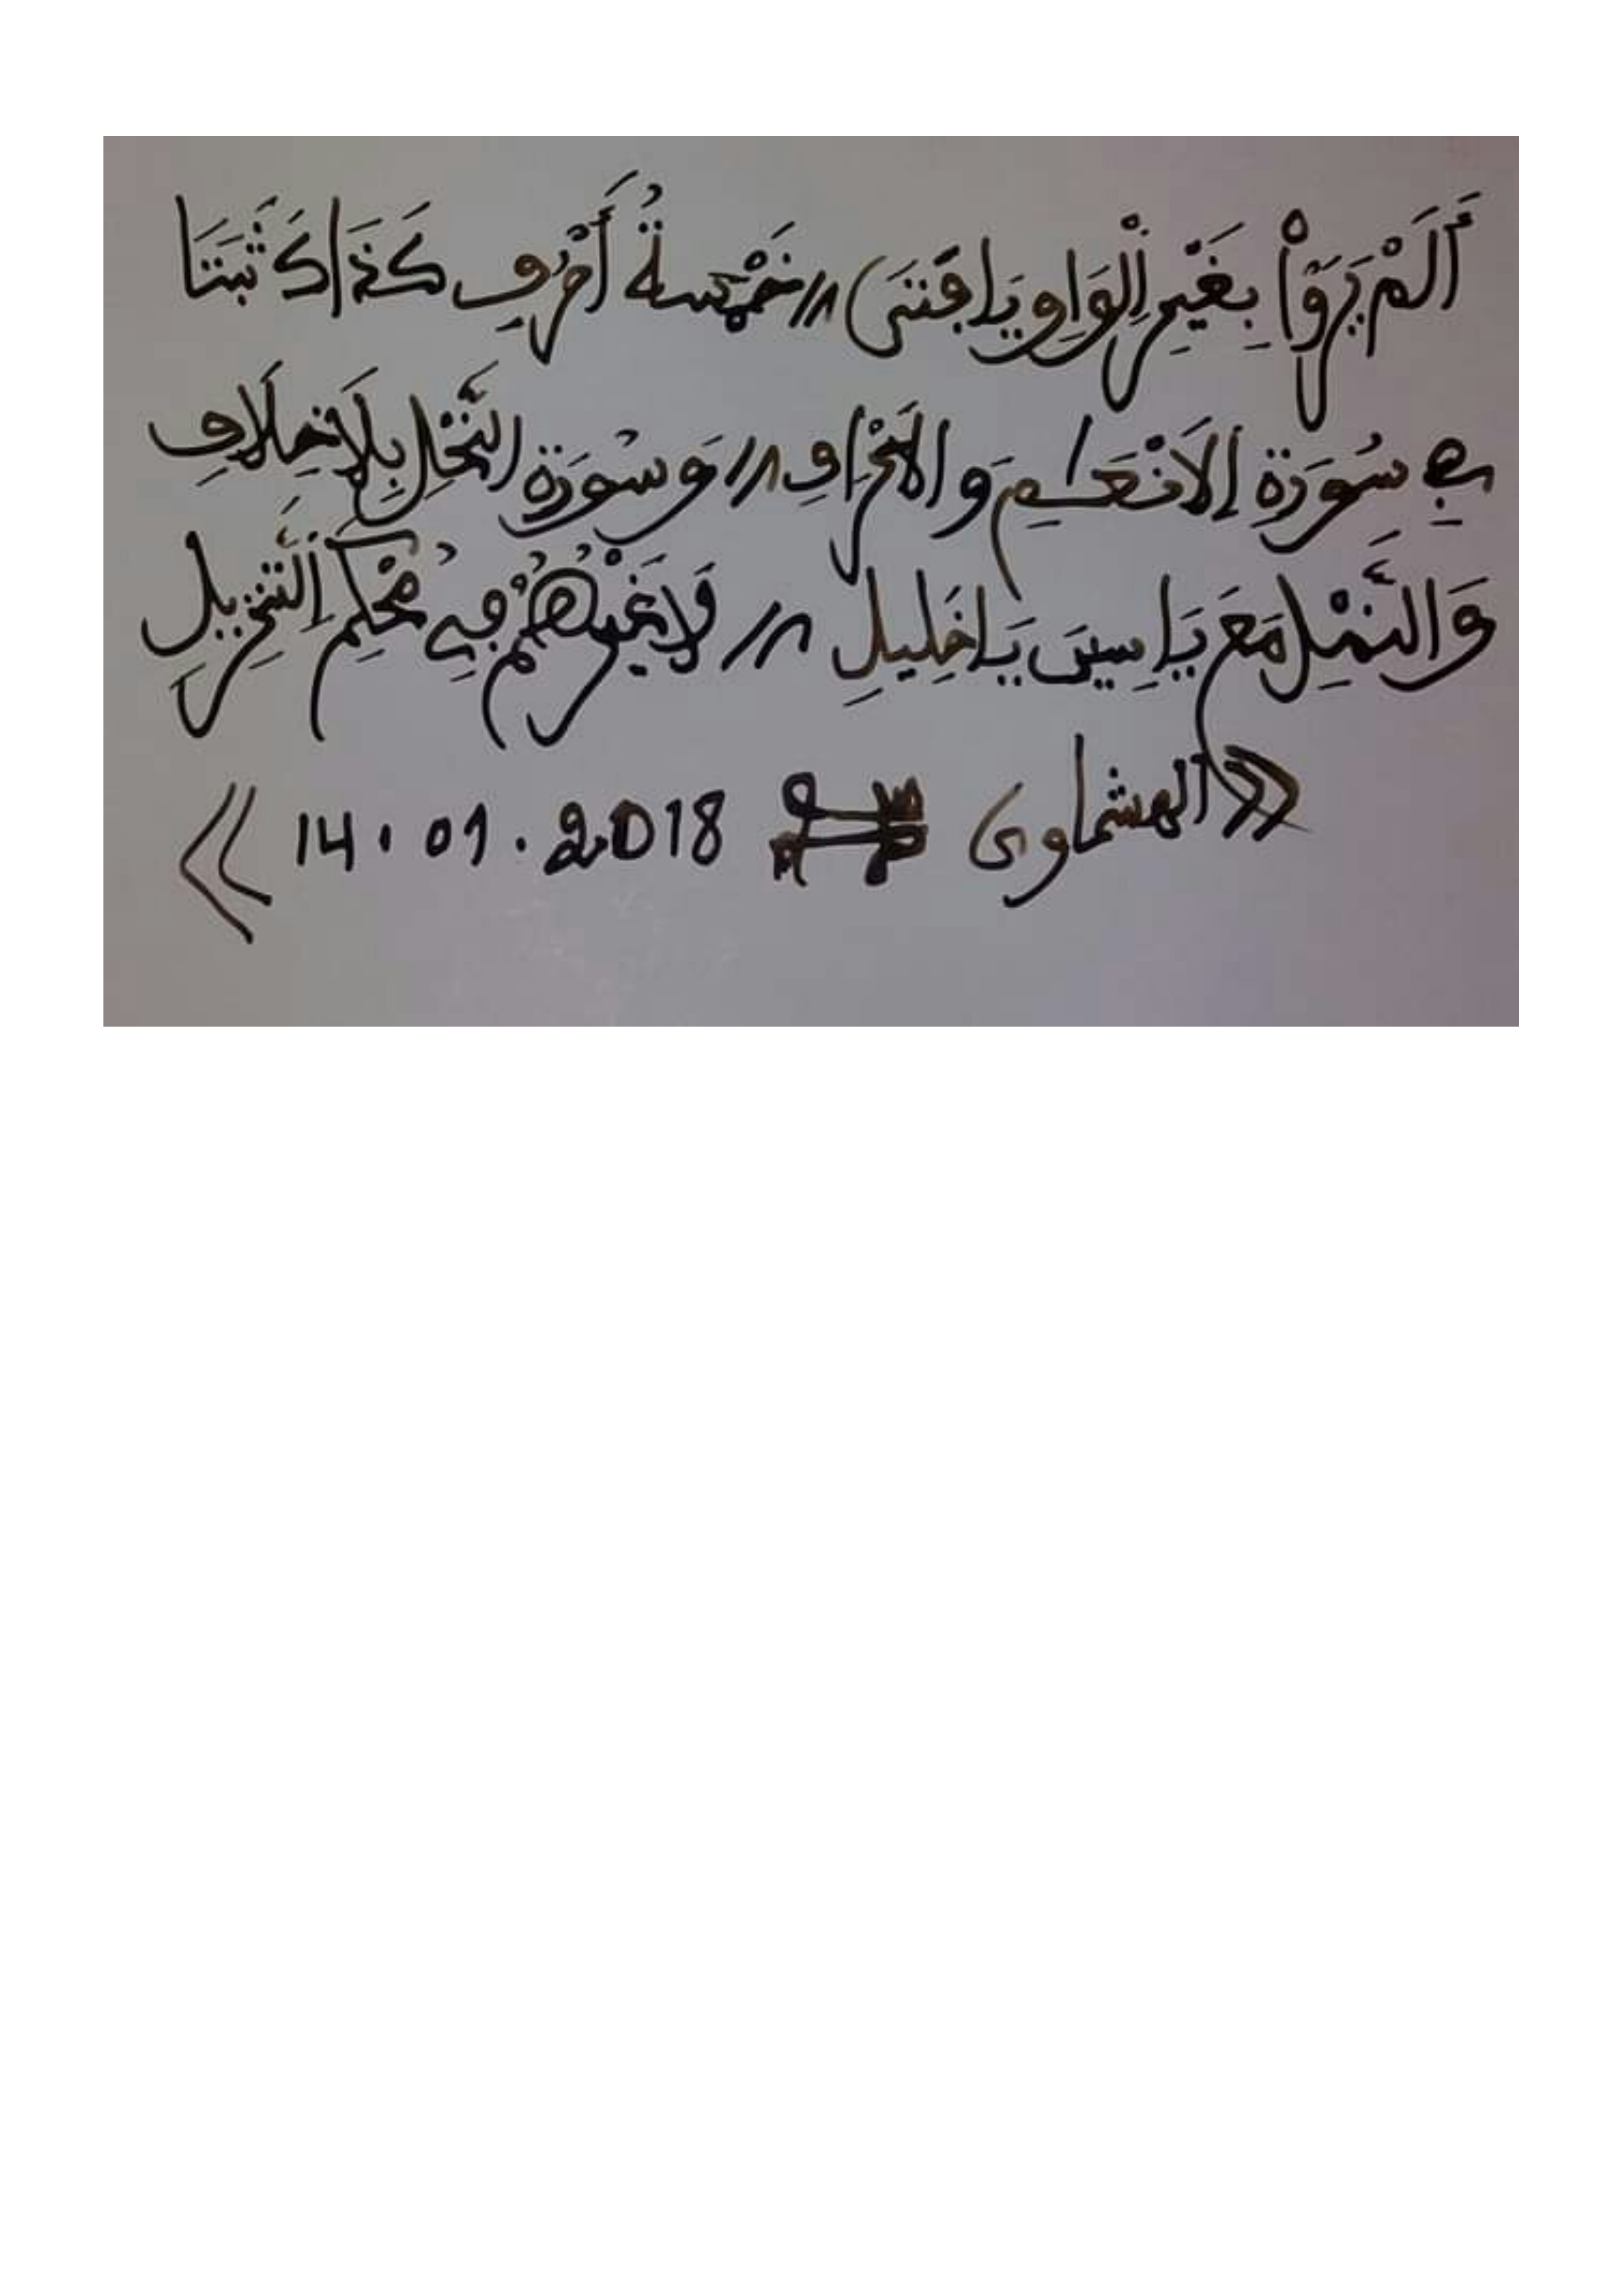 أَلَمْ يَرَوْاْ بِغَيْرِ اِلْوَاوِ يَا فَتَى // خَمْسَةُ أَحْرُفٍ كَذَاكَ ثَبَتَا
فِي سُورَةِ اِلاَنْعَـٰمِ وَالاَعْرَافِ // وَسُورَةِ النَّحْلِ بِلَا خِلَافِ
وَالنَّمْلِ مَعَ يَاسِينَ يَا خَلِيلِ // لَا غَيْرُهُمْ فِي مُحْكَمِ اِلتَّنْزِيلِ
«الهشماوى 14.01.2018»